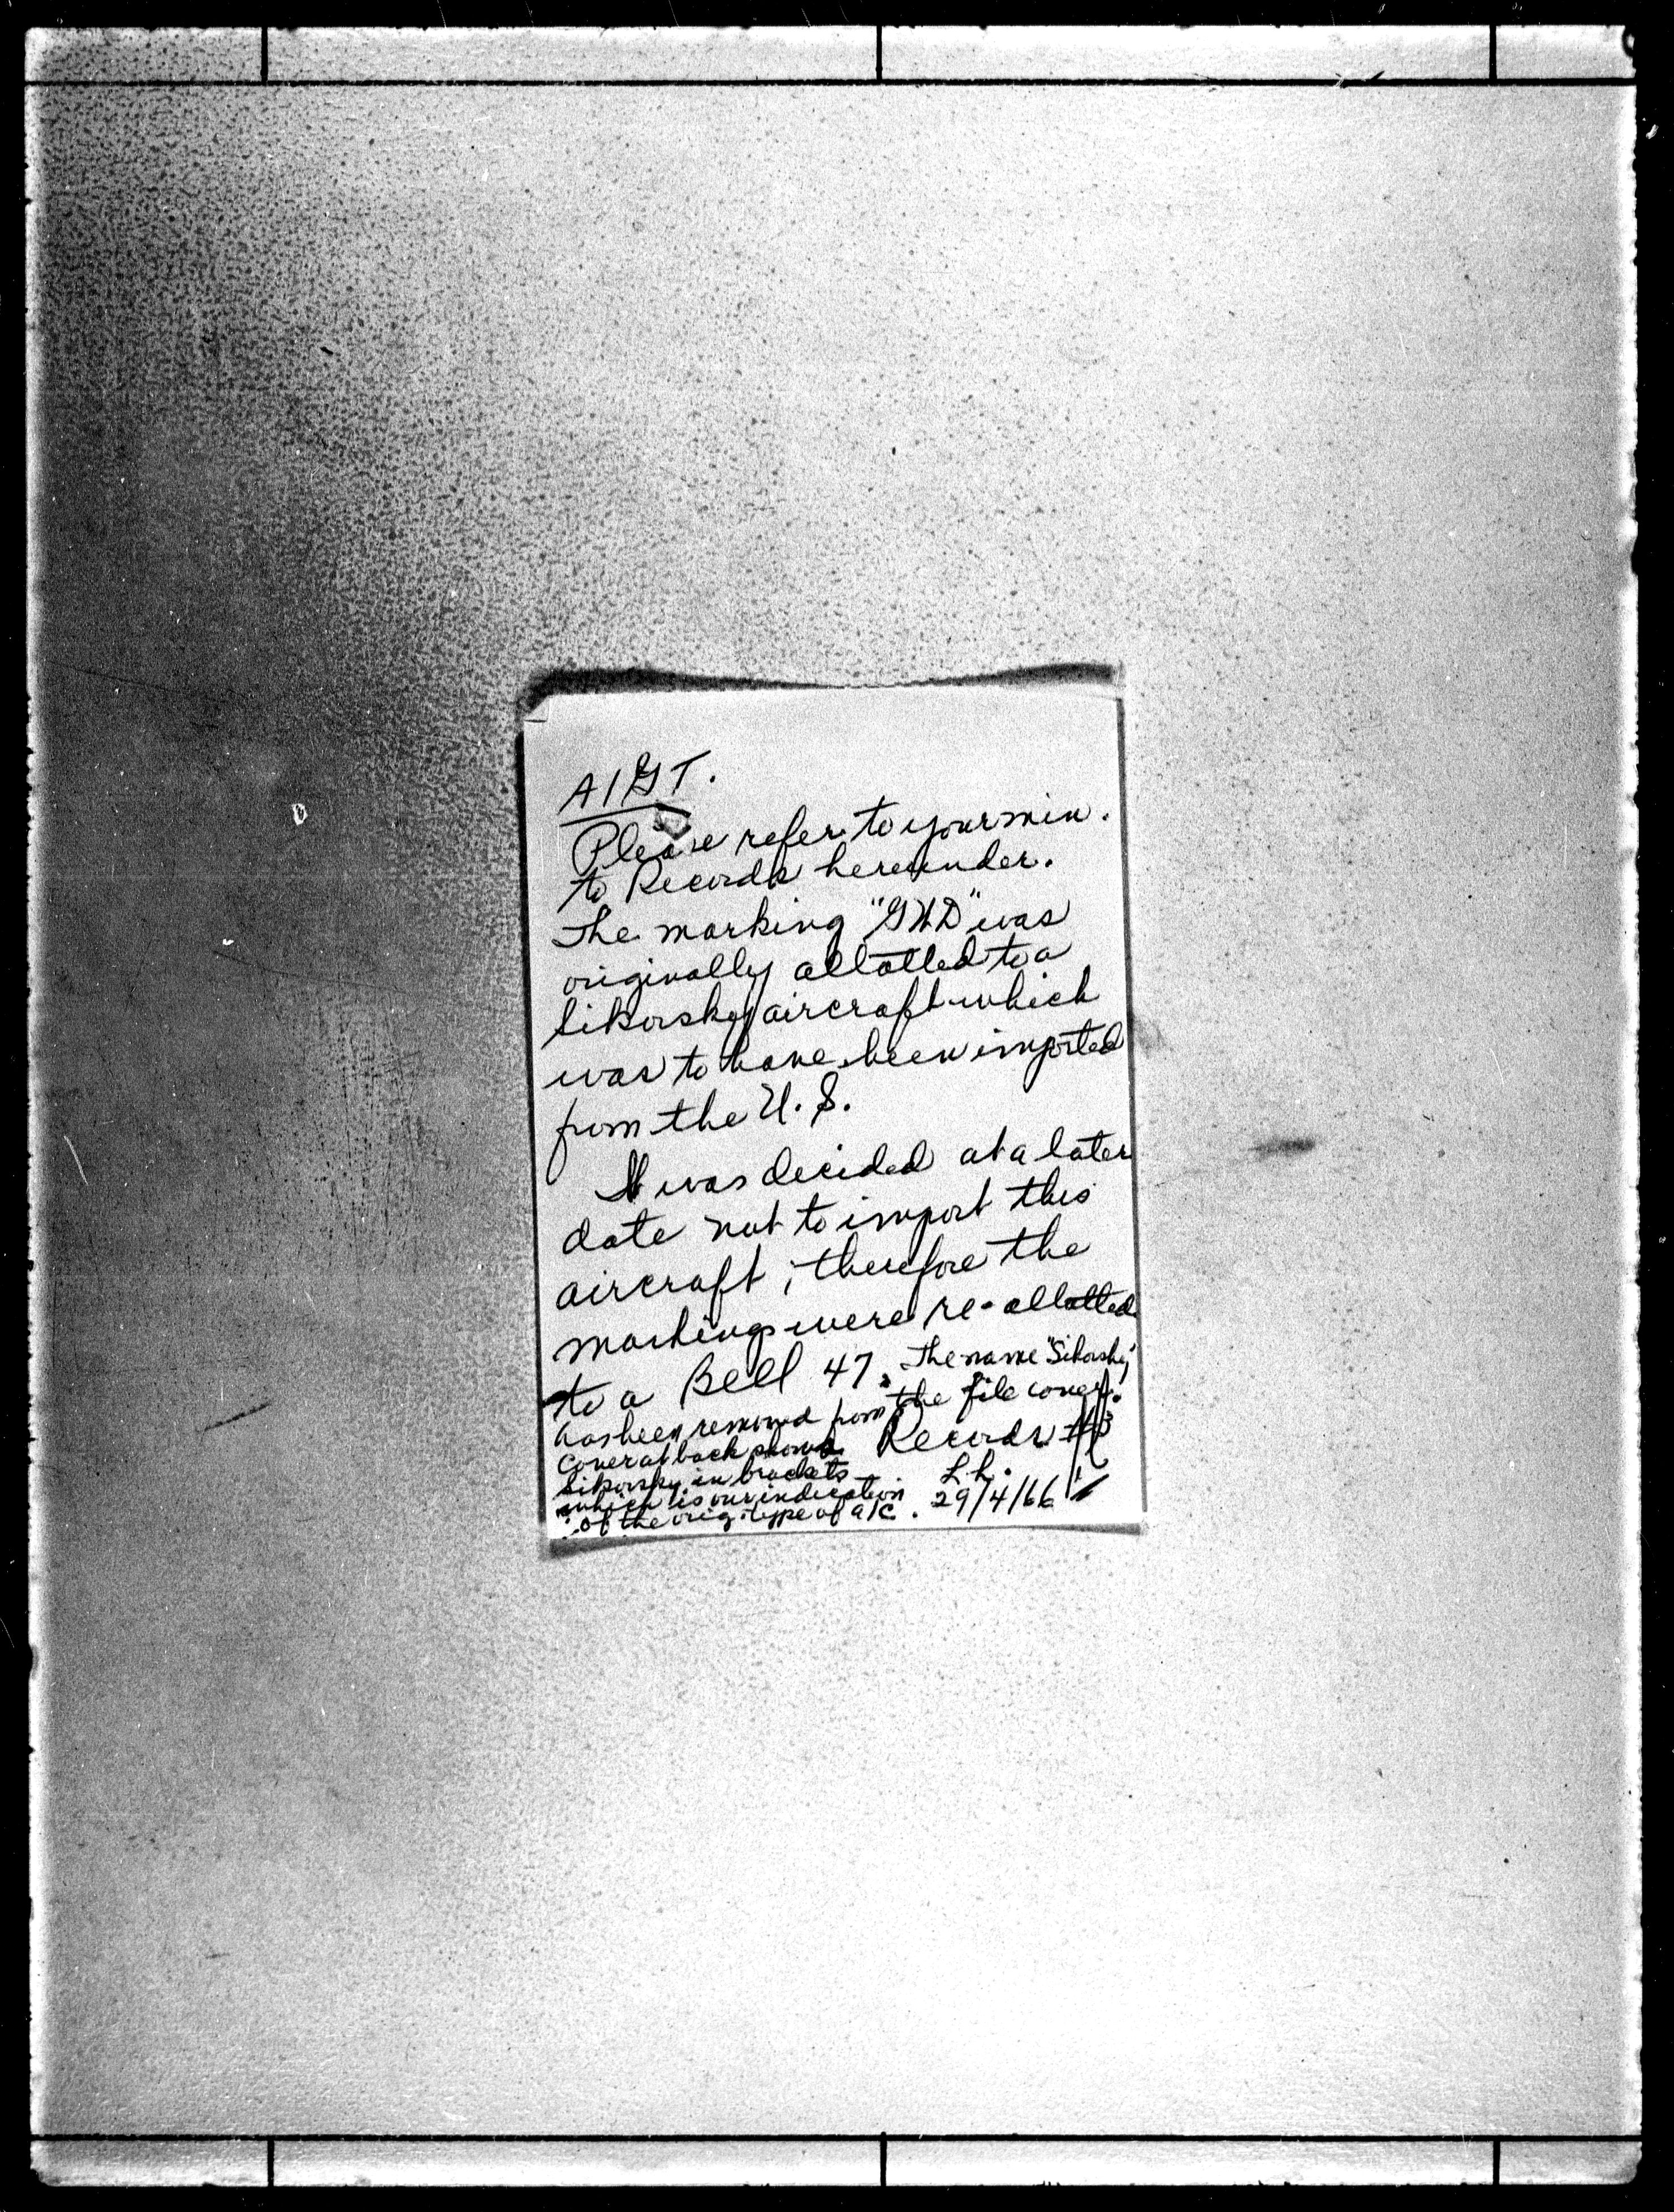 Please refer to your min.
to Records hereunder.
The marking " " was
originally allotted to a
Sikorsky aircraft which
was to have been imported
from the U.S.
It was decided at a later
date not to import this
aircraft; therefore the
markings were re-allotted
to a Bell 47. The name "Sikorsky"
has been removed from the file cover.
Cover at back shows
Sikorsky in brackets
which is our indication
of the orig. type of a/c.
Records
L.L.
29/4/66